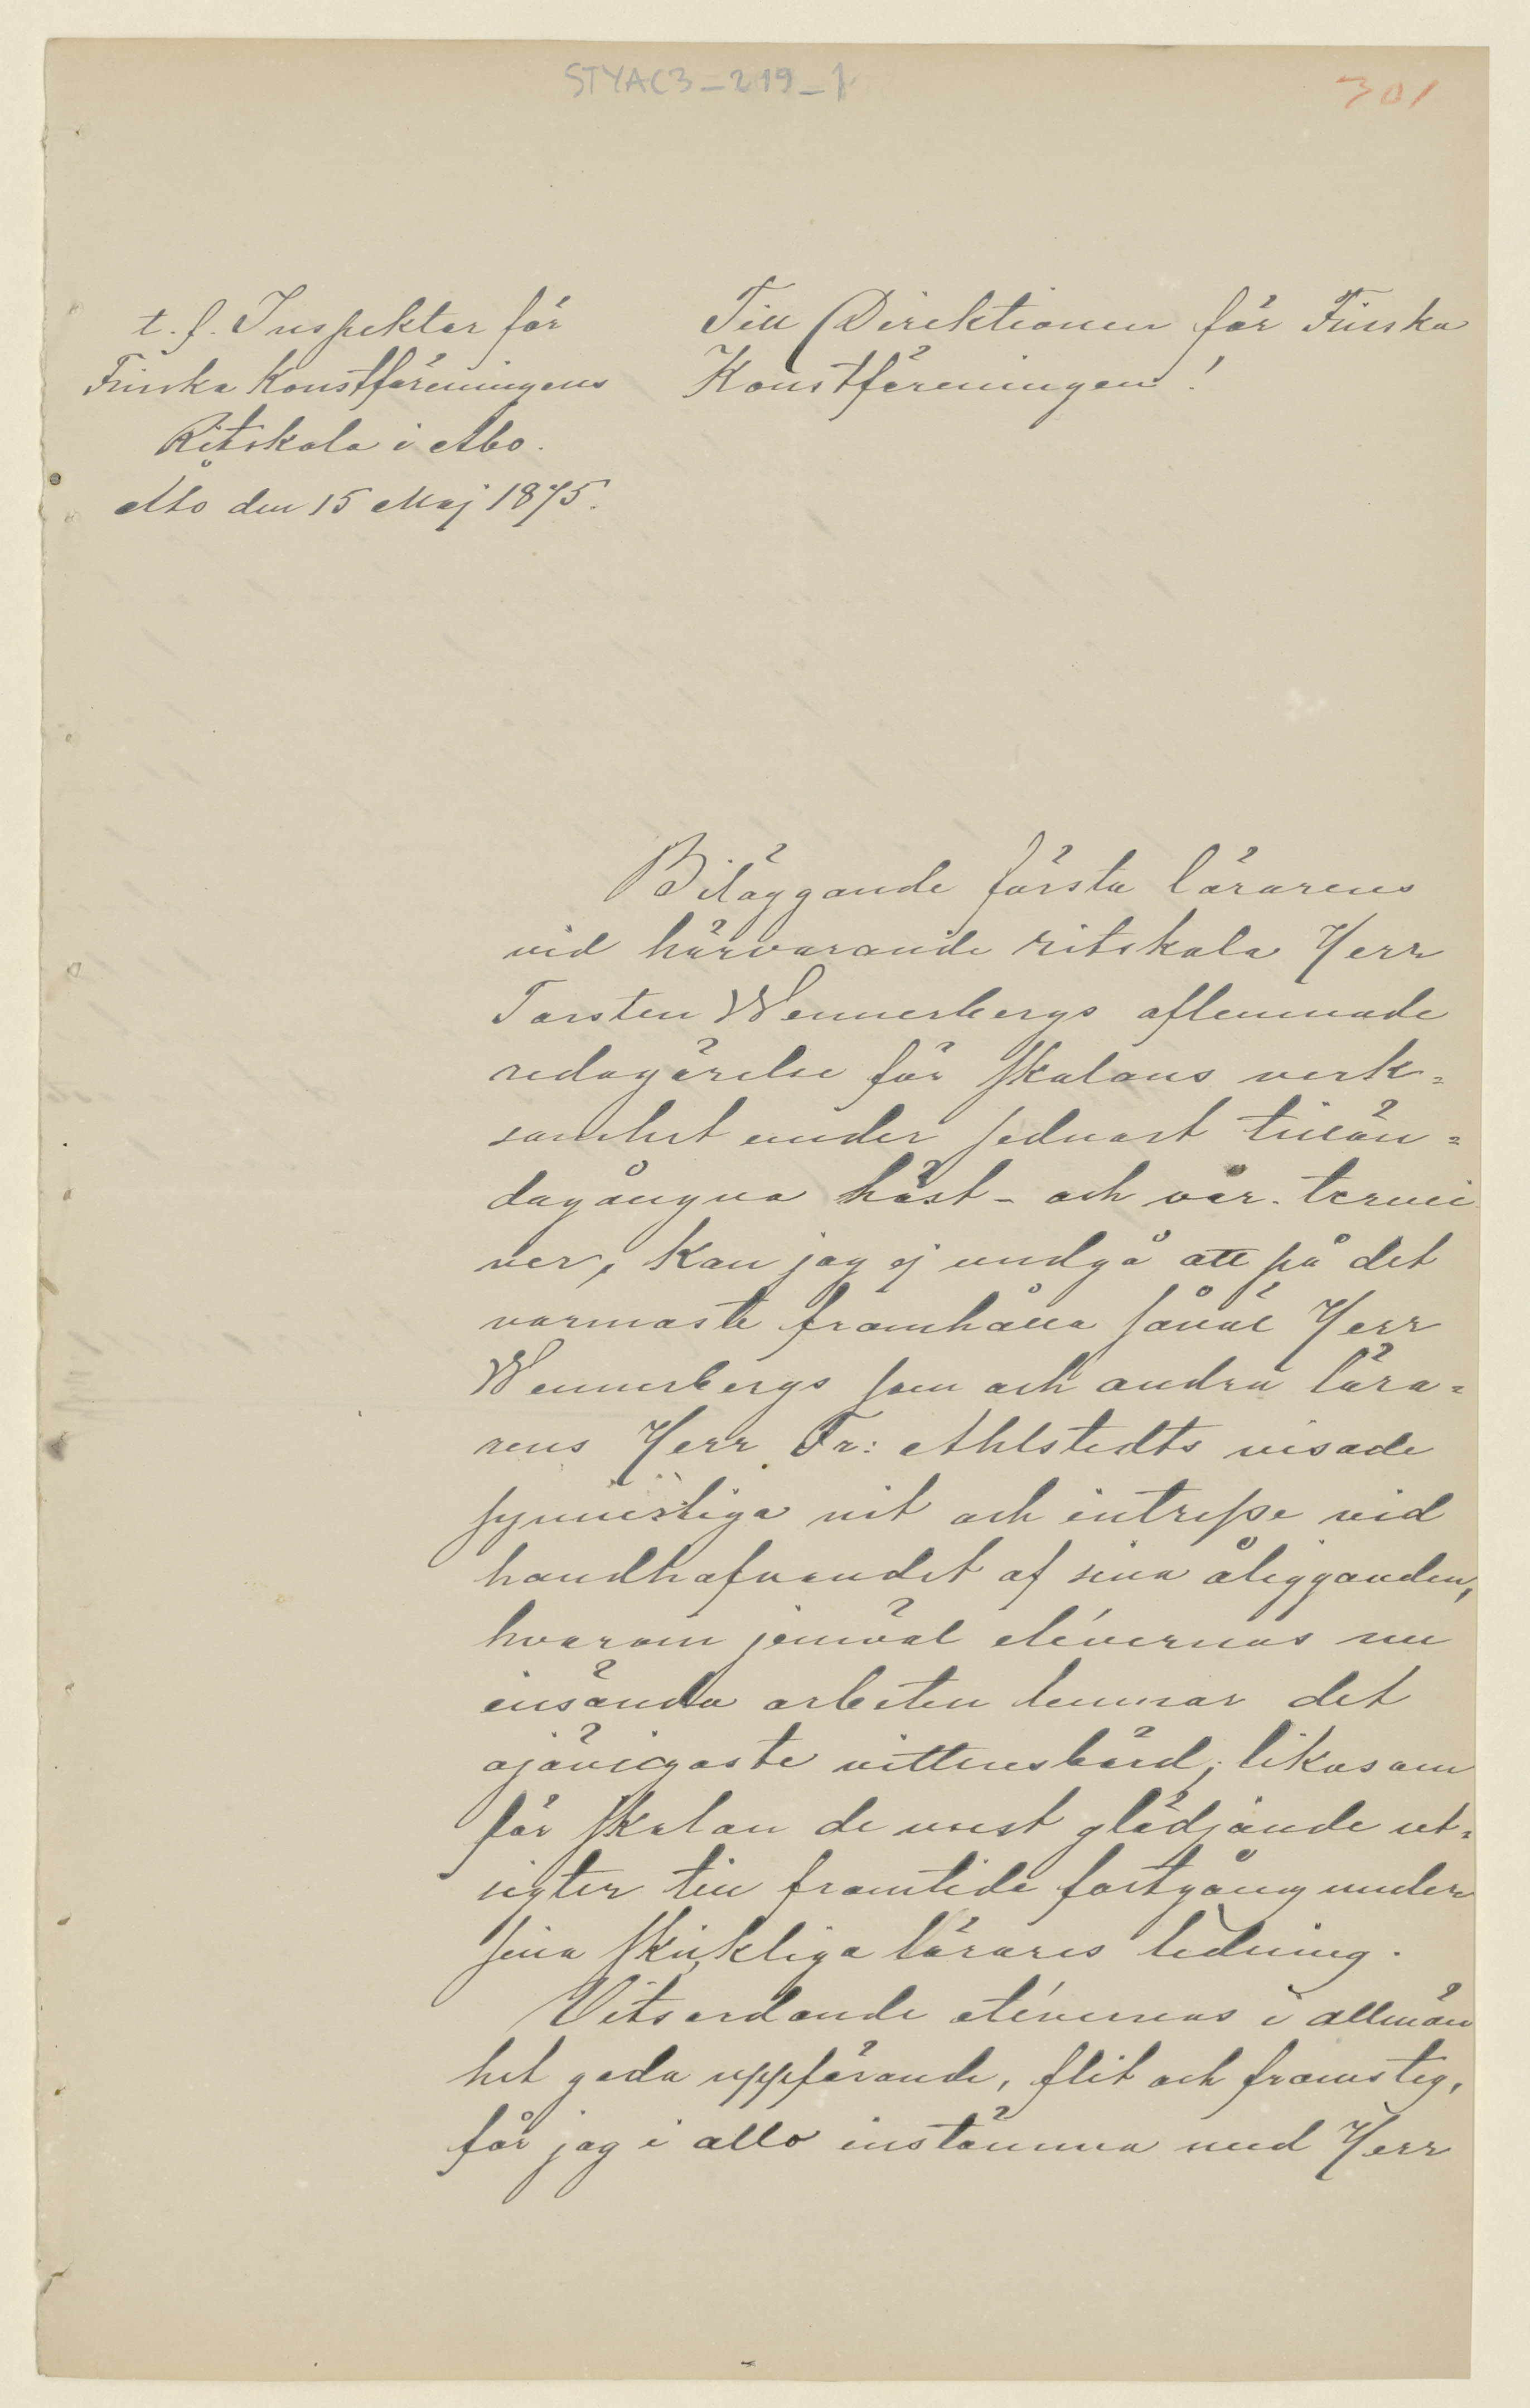 STYAC3_219_1
301
t. f. Inspektor för
Finska Konstföreningens
Ritskola i Åbo.
Åbo den 15 Maj 1875.
Till Direktionen för Finska
Konstföreningen!
Biläggande första lärarens
vid härvarande ritskola Herr
Torsten Wennerbergs aflemnade
redogörelse för skolans verk=
samhet under sednast tillän=
dagångna höst- och vår-termi
ner, kan jag ej undgå att på det
varmaste framhålla såväl Herr
Wennerbergs som och andra lära=
rens Herr Fr: Ahlstedts visade
synnerliga nit och intresse vid
handhafvandet af sina åligganden,
hvarom jemväl elévernas nu
insända arbeten lemnar det
ojäfvigaste vittnesbörd, likasom
för skolan de mest glädjande ut=
sigter till framtida fortgång under
sina skickliga lärares ledning.
Vitsordande elévernas i allmän
het goda uppförande, flit och framsteg,
får jag i allo instämma med Herr